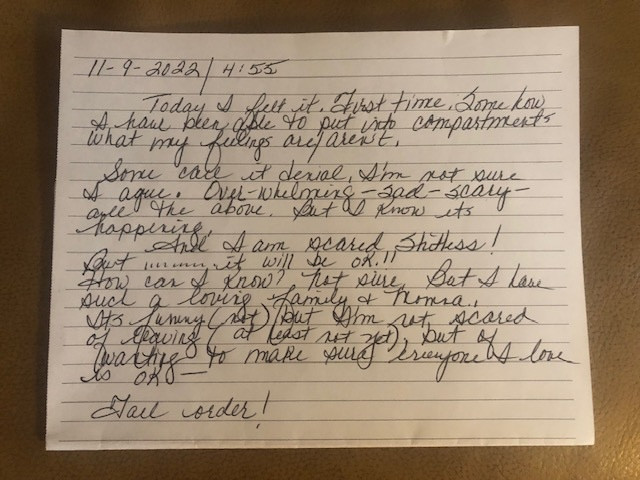 11-9-2022 / 4:55
Today I felt it. First time. Some how
I have been able to put into compartments
what my feelings are/aren't.
Some call it denial, I'm not sure
I ague. Over-whelming - sad - scary -
all the above. But I know its
happening.
And I am scared shitless!
But ........ it will be ok!!
How can I know? Not sure. But I have
such a loving family &
Its funny (not) but I'm not scared
of leaving (at least not yet), but of
wanting to make sure everyone I love
is OK —
Tall order!